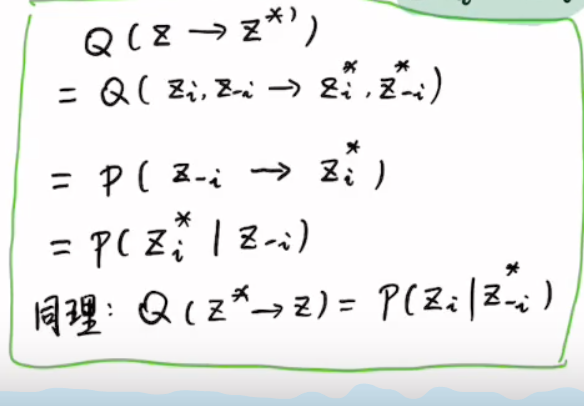 Q(z → z*)
= Q(zᵢ, z₋ᵢ → zᵢ*, z₋ᵢ*)
= P(z₋ᵢ → zᵢ*)
= P(zᵢ* | z₋ᵢ)
同理: Q(z* → z) = P(zᵢ | z₋ᵢ*)